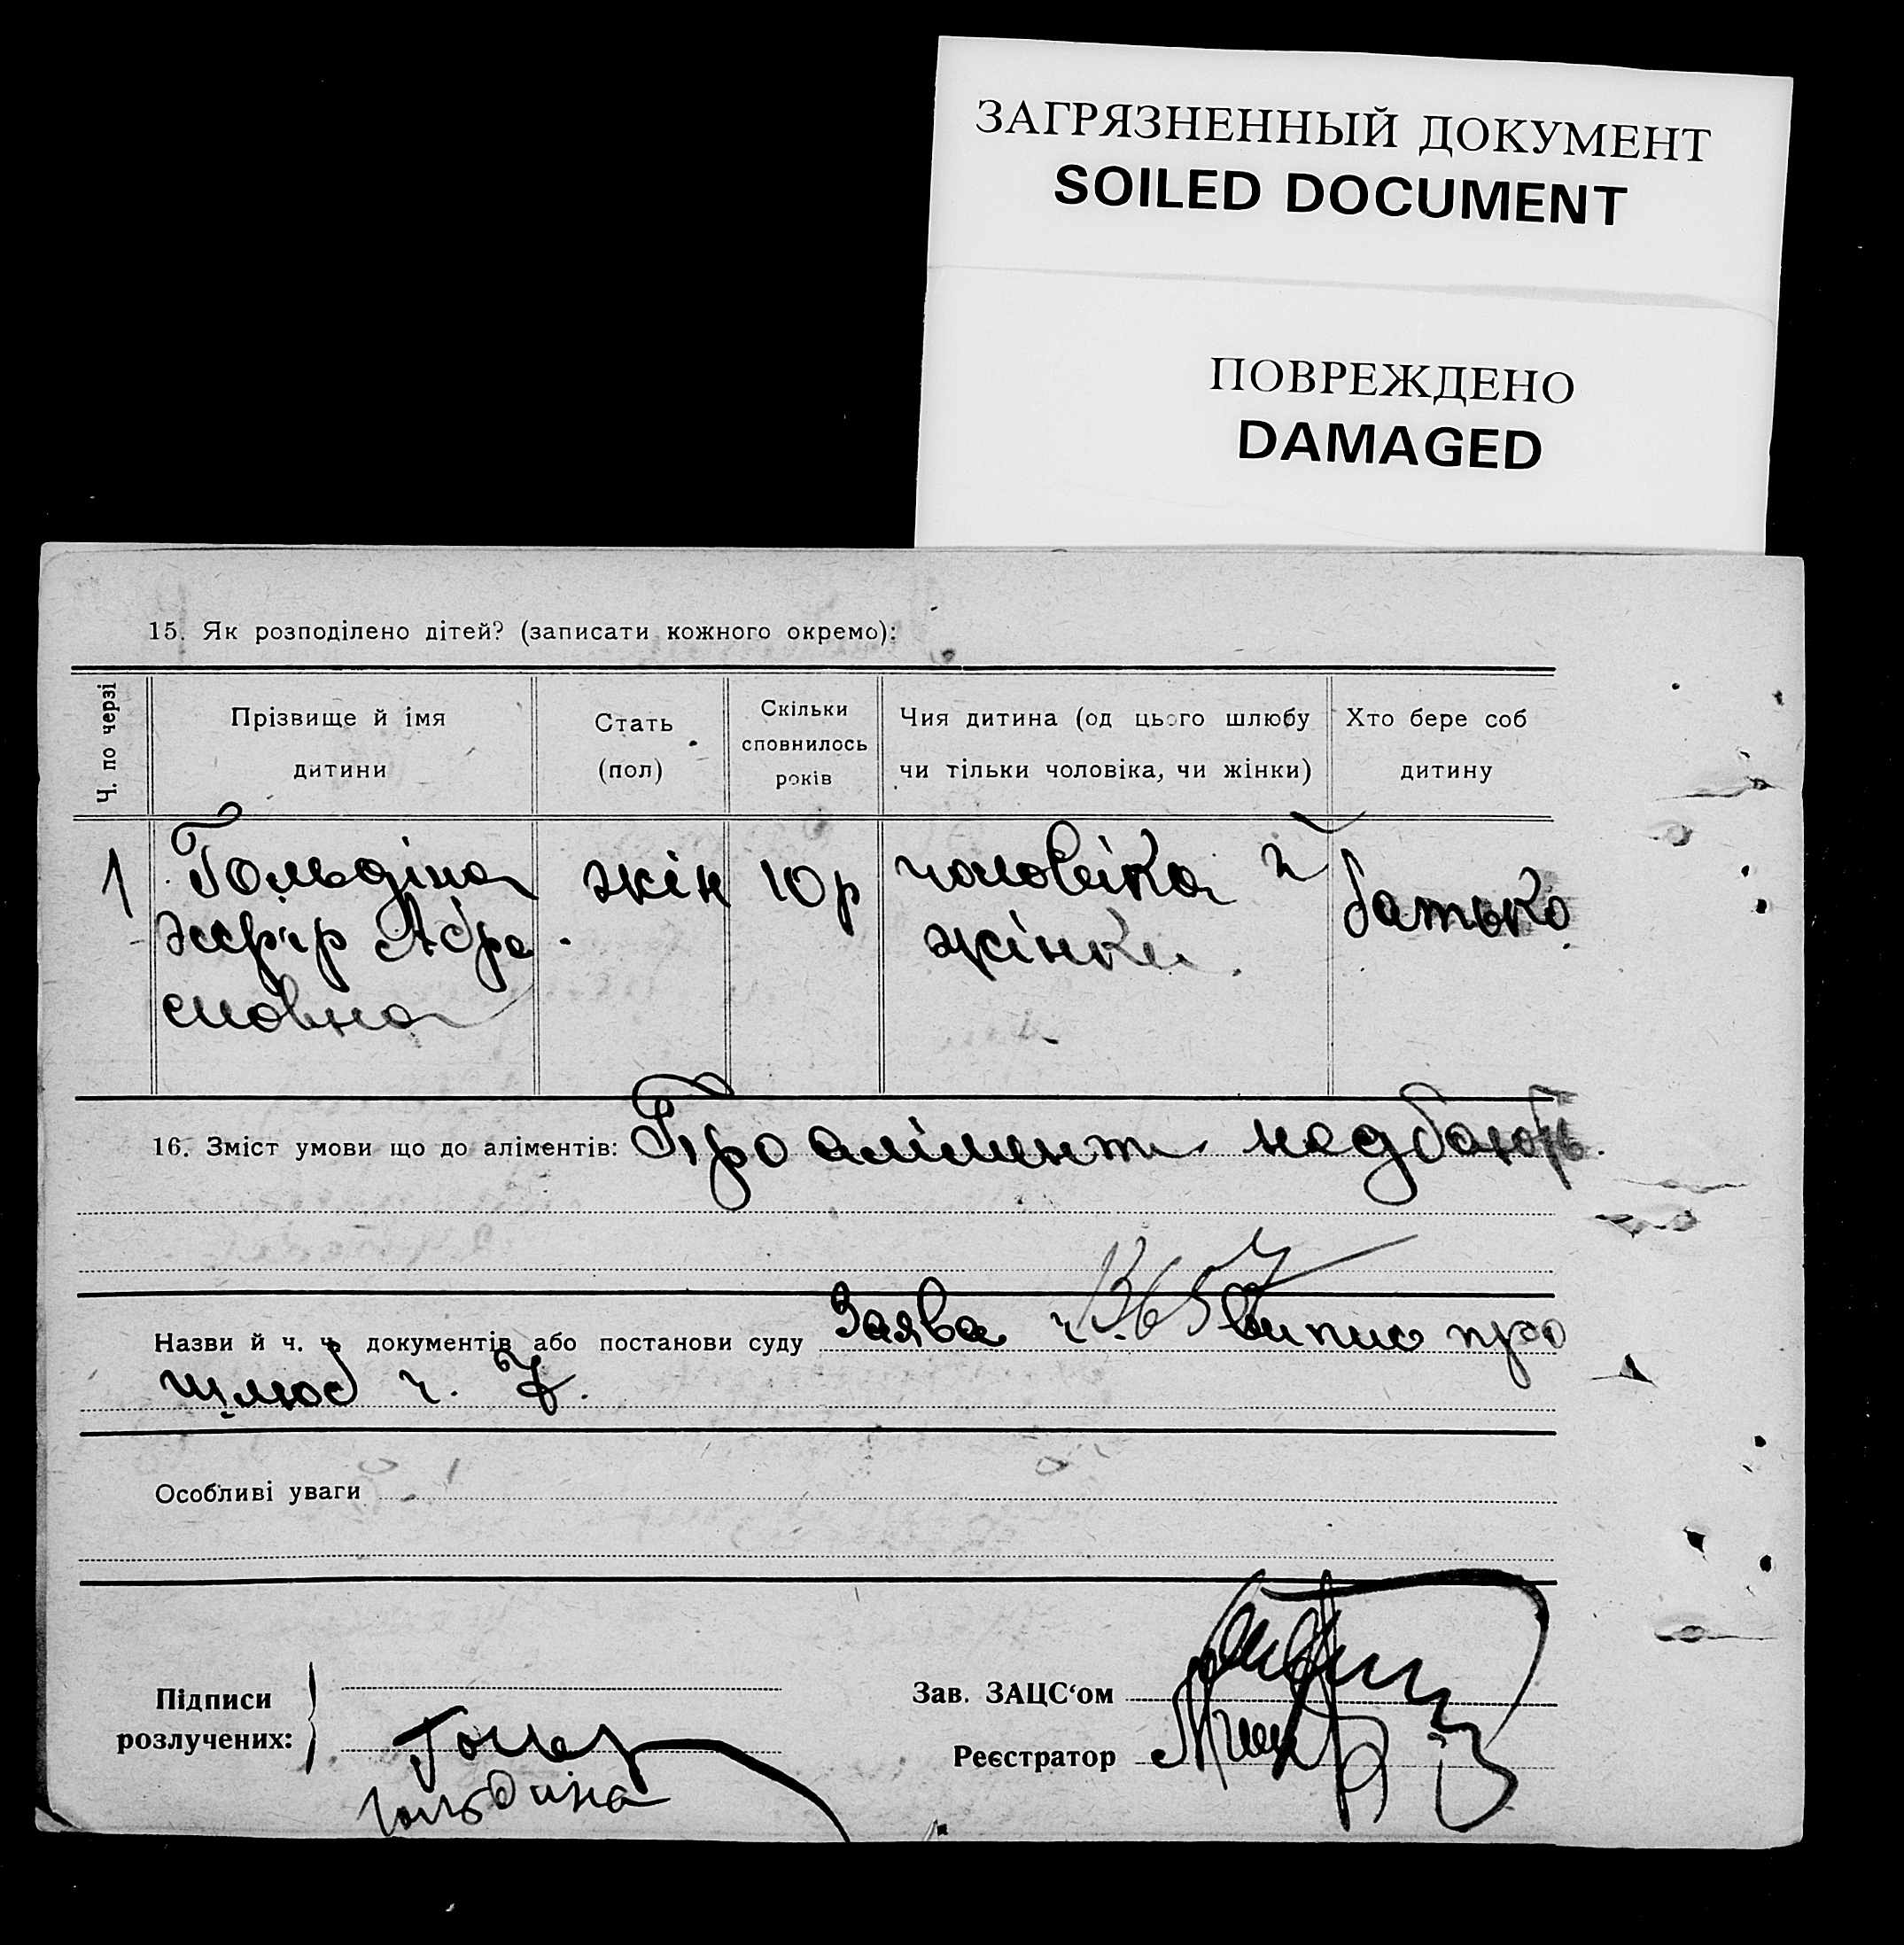 ЗАГРЯЗНЕННЫЙ ДОКУМЕНТ
SOILED DOCUMENT
ПОВРЕЖДЕНО
DAMAGED
15. Як розподілено дітей? (записати кожного окремо):
Ч. по черзі
Прізвище й імя
дитини
Стать
(пол)
Скільки
сповнилось
років
Чия дитина (од цього шлюбу
чи тільки чоловіка, чи жінки)
Хто бере соб
дитину
1 Гольдіна жін 10 р чоловіка й батько
Абра жінки
мовна
16. Зміст умови що до аліментів: Про алімент
Назви й ч. ч. документів або постанови суду Заява ч. 13657 випис про
шлюб ч. 7.
Особливі уваги
Підписи
розлучених:
Гольдина
Зав. ЗАЦС‘ом
Реєстратор